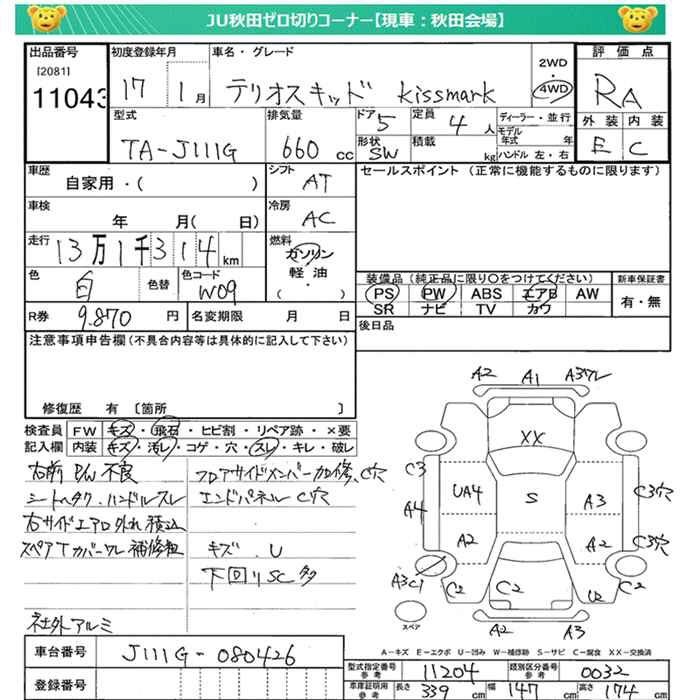 JU秋田ゼロ切りコーナー【現車：秋田会場】
出品番号 初度登録年月 車名・グレード 評価点
[2081]
11043 17 1月 テリオスキッド kissmark 2WD 4WD RA
型式 排気量 ドア 定員 ディーラー・並行 外装 内装
TA-J111G 660cc 5 4人 モデル年式 年 E C
形状 積載
SW kg ハンドル 左・右
車歴 シフト セールスポイント (正常に機能するものに限ります)
自家用・( ) AT
車検 冷房
年 月( 日) AC
走行 燃料
13万1千314km ガソリン
軽油・( )
色 色替 色コード 装備品 (純正品に限り○をつけてください) 新車保証書
白 W09 PS PW ABS エアB AW 有・無
SR ナビ TV カワ
R券 9.870円 名変期限 月 日 後日品
注意事項申告欄 (不具合内容等は具体的に記入して下さい)
修復歴 有 [箇所 ]
検査員 FW キズ・飛石・ヒビ割・リペア跡・×要
記入欄 内装 キズ・汚レ・コゲ・穴・スレ・キレ・破レ
右前 P/W 不良 フロアサイドメンバー加修、C穴
シートヘタク.ハンドルスレ エンドパネル C穴
右サイドエアロ外れ積込
スペアTカバーワレ補修粗 キズ.U
下回りSC多
社外アルミ
A2 A1 A3ワレ
XX
C3 UA4 S A3 C3穴
A4
A2 A2 C3穴
A3C1 C2 C2 U2 C2
A2 A3
スペア
A－キズ E－エクボ U－凹み W－補修跡 S－サビ C－腐食 XX－交換済
車台番号 J111G-080426
登録番号
型式指定番号参考 11204 類別区分番号参考 0032
車庫証明用参考 長さ 339cm 幅 147cm 高さ 174cm